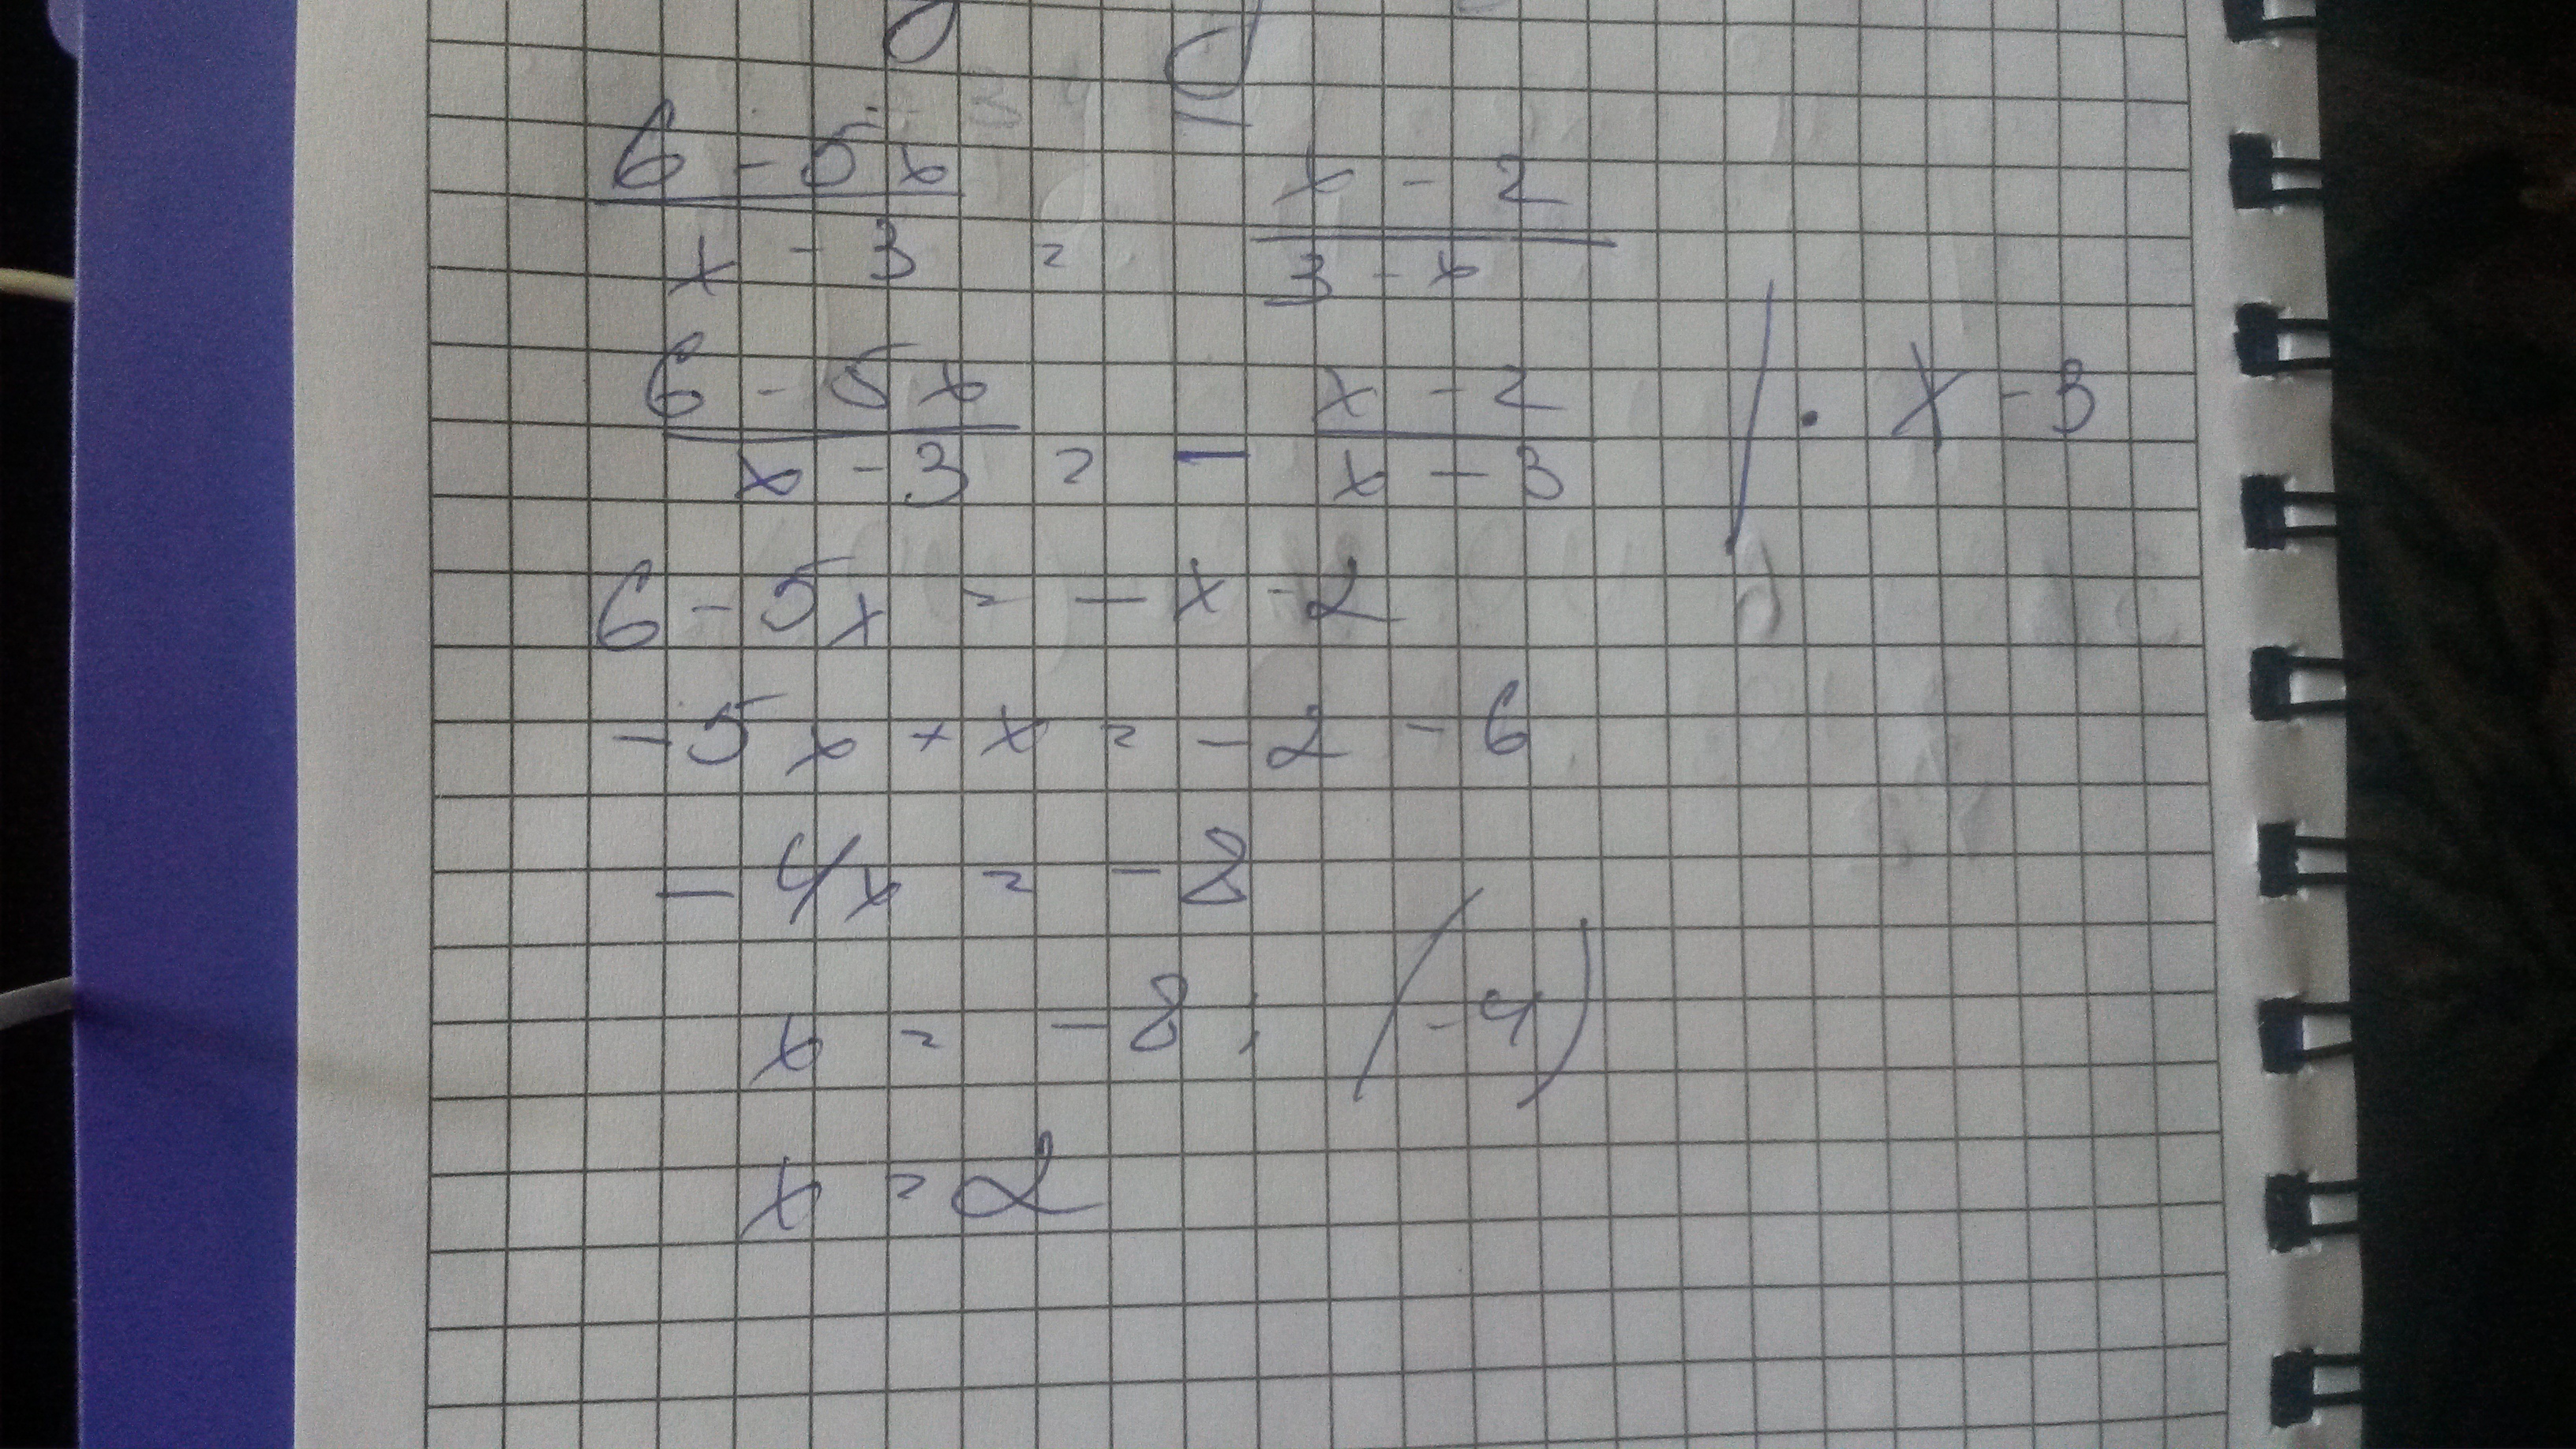 6 - 5x / x - 3 = x - 2 / 3 - x
6 - 5x / x - 3 = - x - 2 / x - 3 | · x - 3
6 - 5x = - x - 2
- 5x + x = - 2 - 6
- 4x = - 8
x = - 8 : (- 4)
x = 2